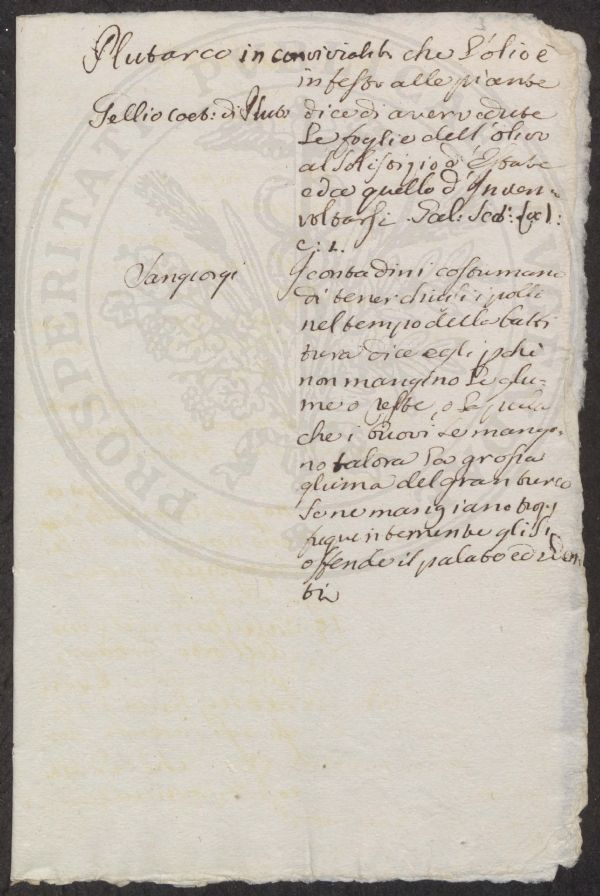 3
Plutarco in convivialib che L'olio è
infesto alle piante
Gellio coet: di Plut dice di aver vedute
Le foglie dell'olivo
al solistizio d'Estate
ed a quello d'Inver-
voltarsi. Gal: Scot:
c: 1.
Sangiorgi I contadini costumano
di tener chiusi i polli
nel tempo della batti
tura dice egli pchè
non mangino Le glu-
me o reste, o La pula
che i buovi se mangia-
no talora La grossa
gluma del gran turco
se ne mangiano trop
frequentemente gli si
offende il palato ed i den
ti
PROSPERITATI PUBLICAE